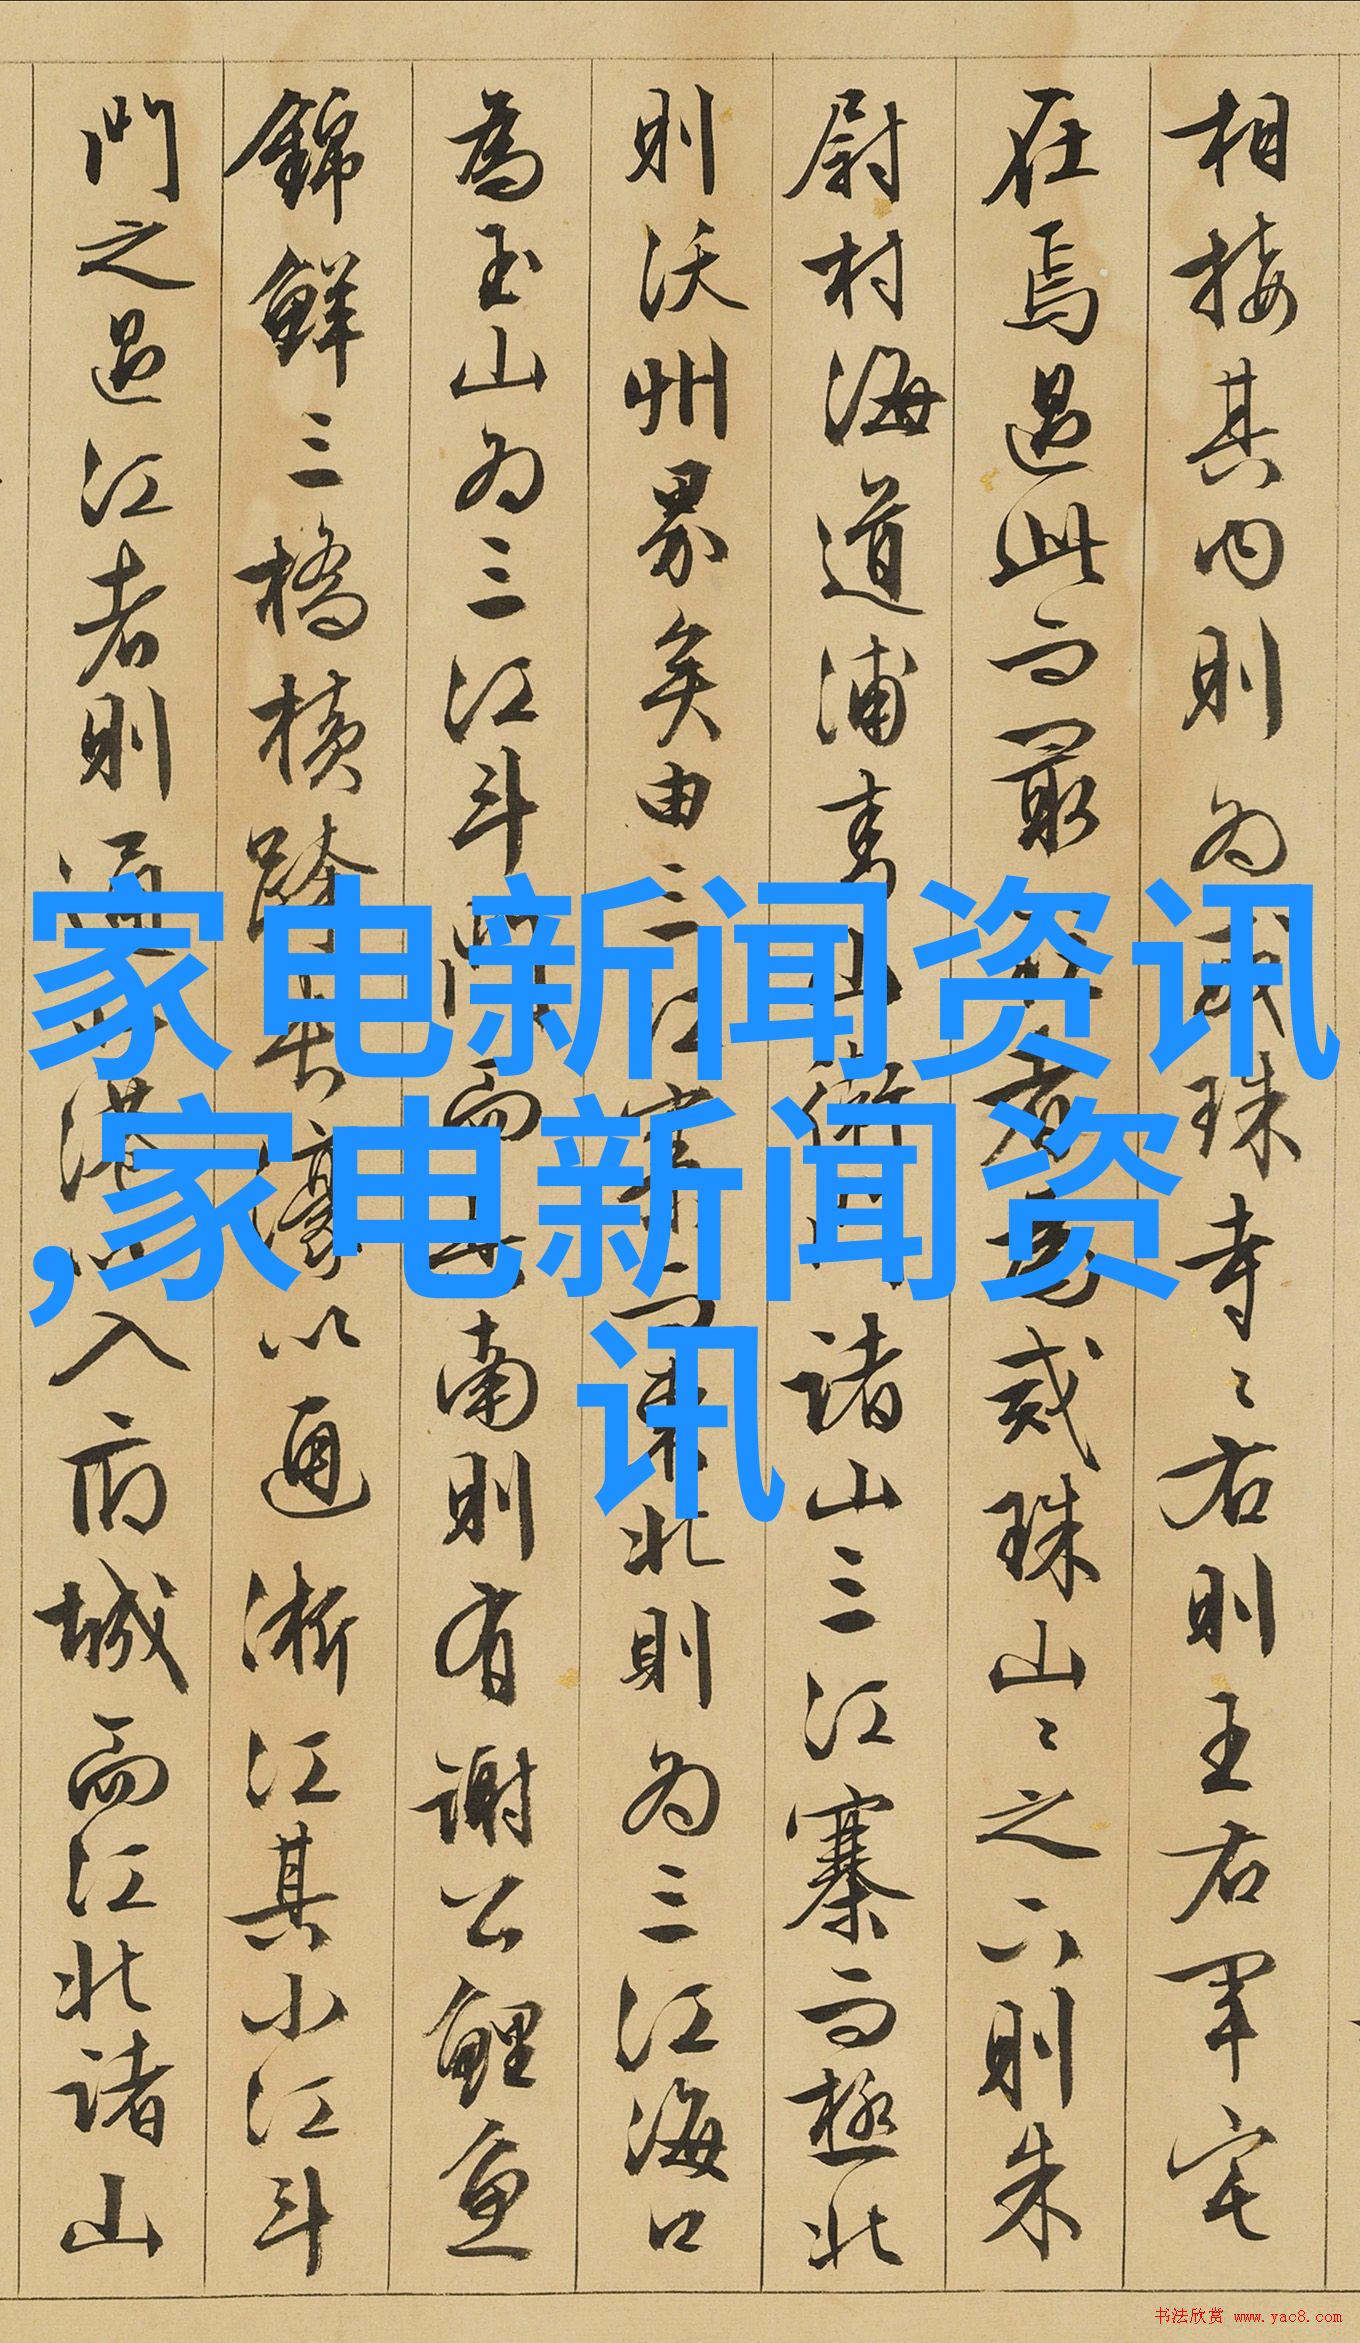 相接其内则为戒珠寺〻右則王右軍宅
在焉過此而最
為戒珠山〻之六則朱
尉村海道浦
諸山三江寨而極北
則沃州界矣由三江
東北則為三江海口
為玉山為三江斗門而
南則有謝公鯉魚
錦鮮三橋橫跨
以通浙江其小江斗
門之過江者則通
入府城而江北諸山
家电新闻资讯
,家电新闻资
讯
书法欣赏 www.yac8.com